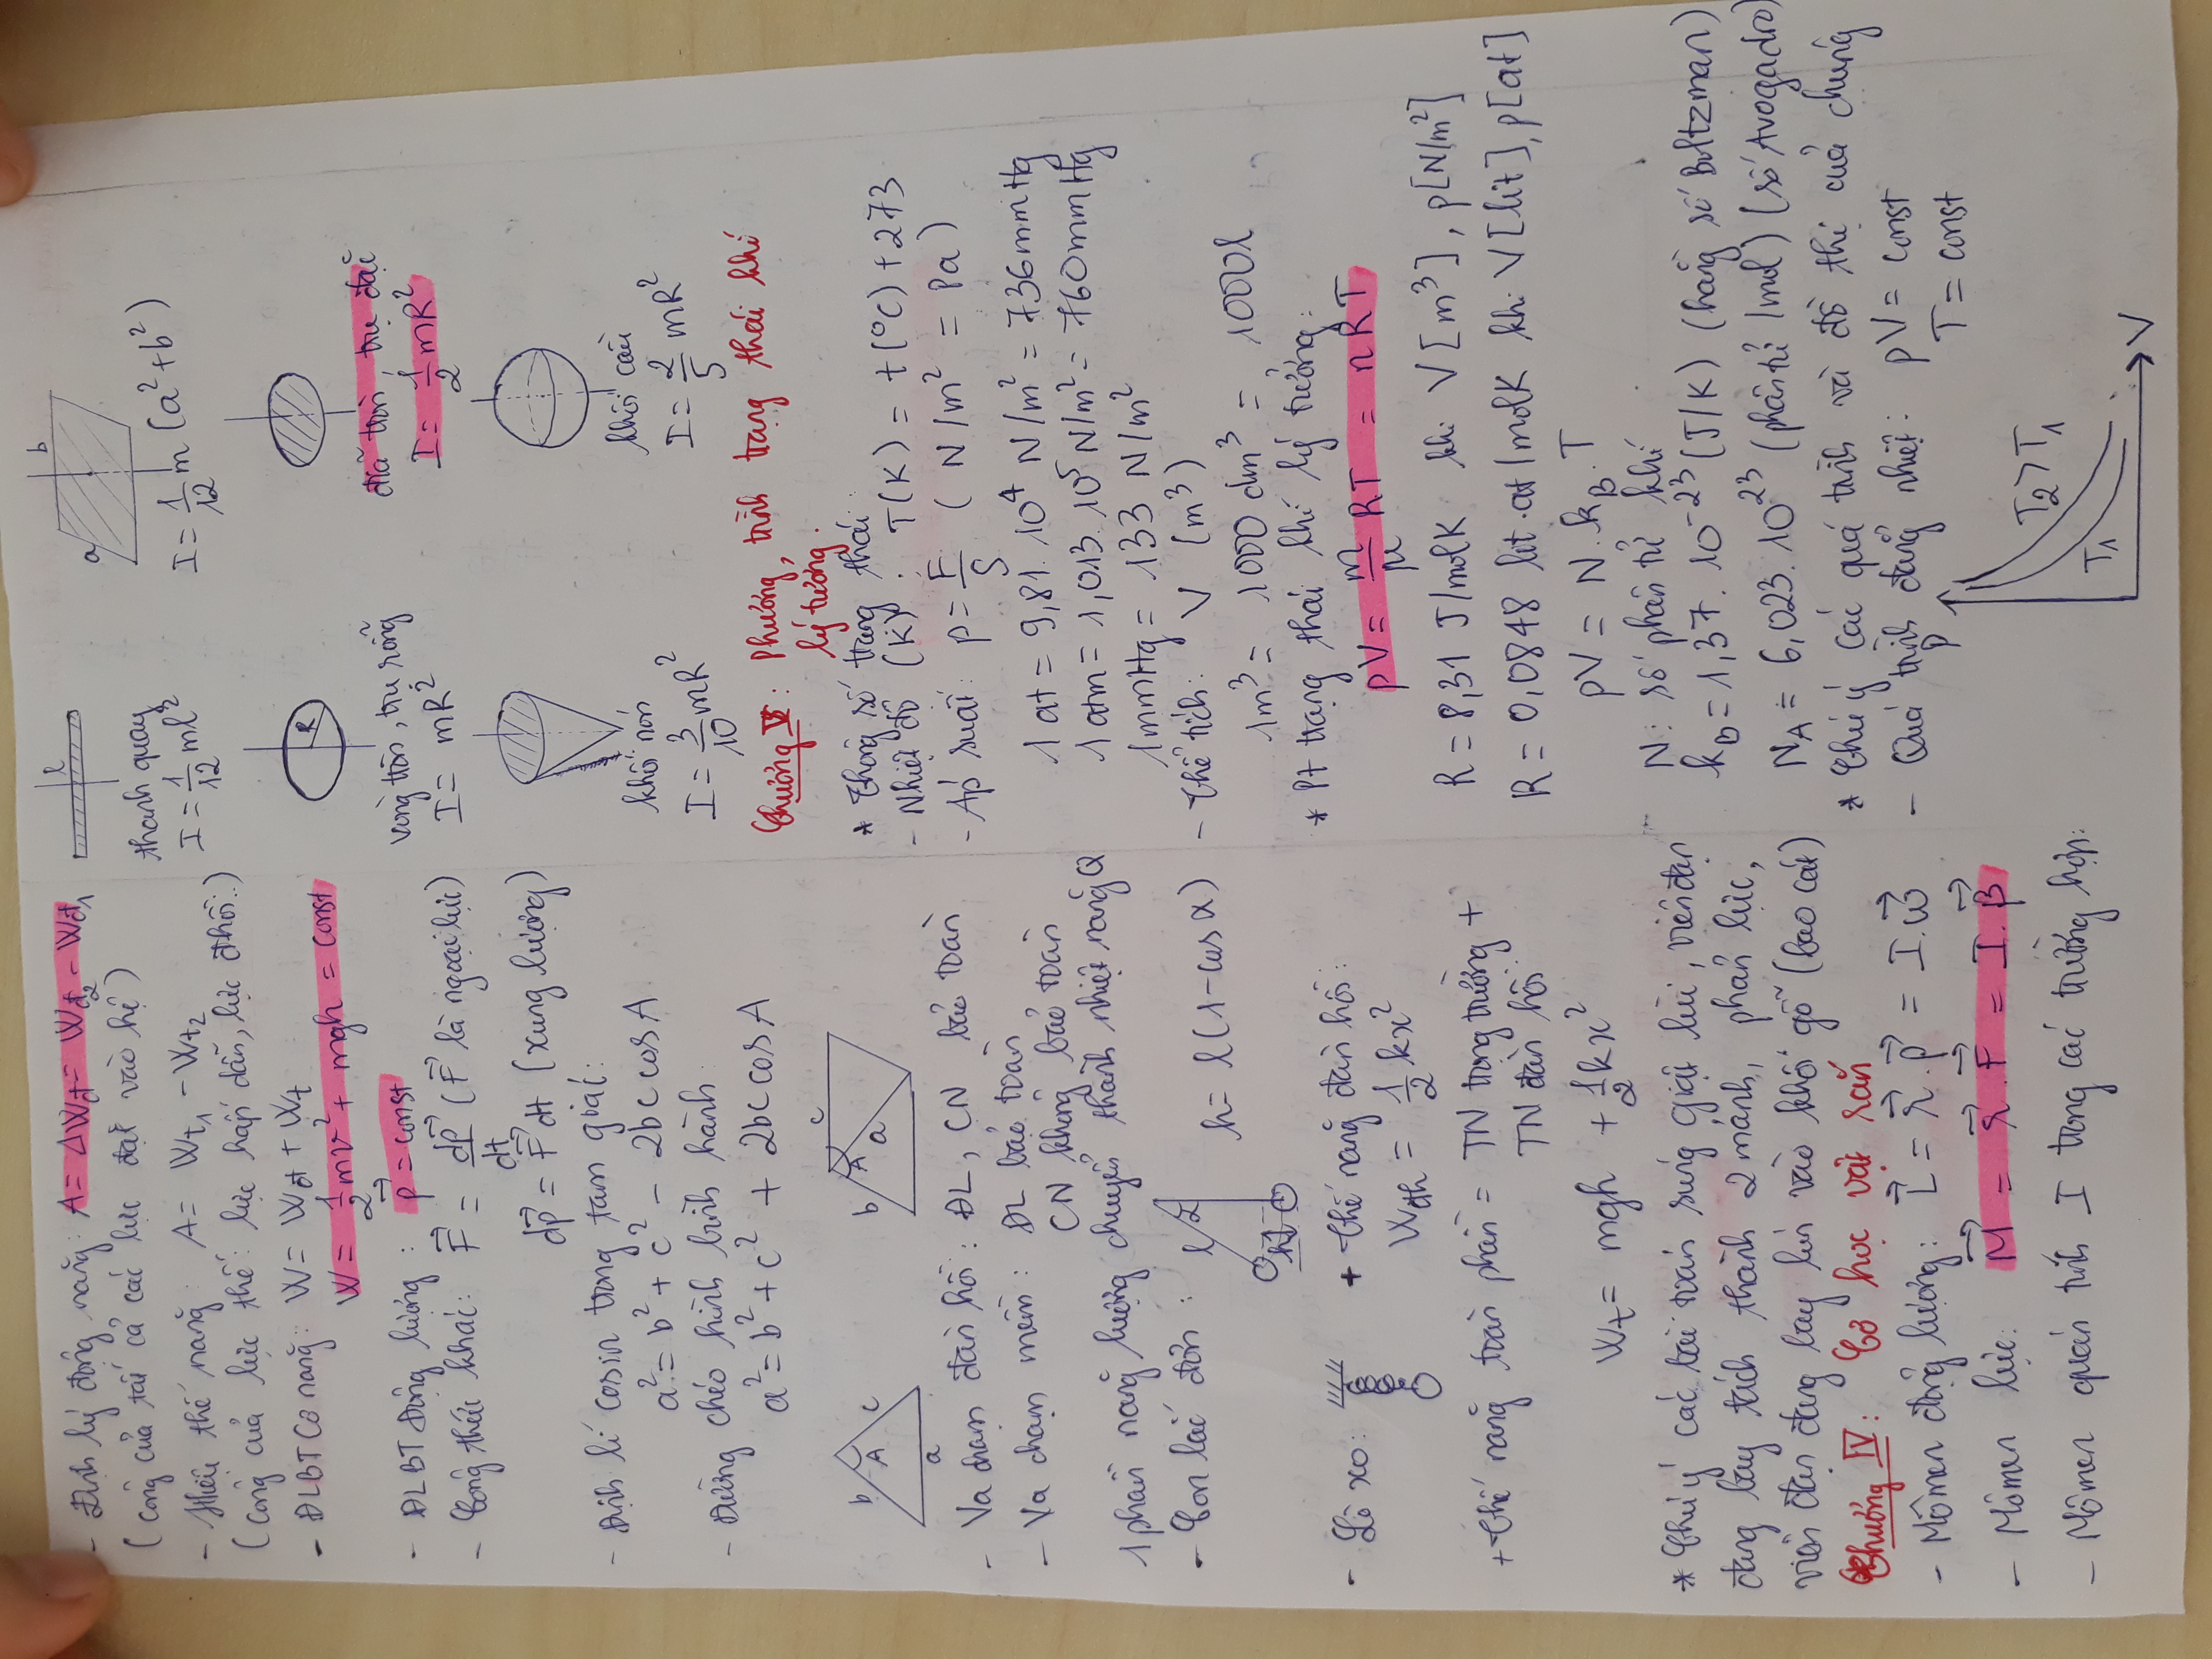 - Định lý động năng: A = ΔWđ = Wđ₂ - Wđ₁
(công của tất cả các lực đặt vào hệ)
- Hiệu thế năng: A = Wt₁ - Wt₂
(công của lực thế: lực hấp dẫn, lực đhồi..)
- ĐLBT Cơ năng: W = Wđ + Wt
W = 1/2 mv² + mgh = const
- ĐLBT Động lượng: p⃗ = const
- Công thức khác: F⃗ = dp⃗/dt (F⃗ là ngoại lực)
dp⃗ = F⃗ dt (xung lượng)
- Định lí cosin trong tam giác:
a² = b² + c² - 2bc cosA
- Đường chéo hình bình hành:
a² = b² + c² + 2bc cosA
b A c
a
c
b A a
- Va chạm đàn hồi: ĐL, CN bảo toàn
- Va chạm mềm: ĐL bảo toàn
CN không bảo toàn
1 phần năng lượng chuyển thành nhiệt năng Q
- Con lắc đơn: l α h = l(1 - cos α)
h
- Lò xo: + Thế năng đàn hồi:
Wđh = 1/2 kx²
+ Thế năng toàn phần = TN trọng trường +
TN đàn hồi
Wt = mgh + 1/2 kx²
* Chú ý các bài toán súng giật lùi, viên đạn
đang bay tách thành 2 mảnh, phản lực,
viên đạn đang bay lún vào khối gỗ (bao cát)
Chương IV: Cơ học vật rắn
- Mômen động lượng: L⃗ = r⃗ . p⃗ = I.ω⃗
- Mômen lực: M⃗ = r⃗ . F⃗ = I. β⃗
- Mômen quán tính I trong các trường hợp:
l
thanh quay
I = 1/12 ml²
b
a
I = 1/12 m (a² + b²)
R
vòng tròn, trụ rỗng
I = mR²
đĩa tròn, trụ đặc
I = 1/2 mR²
khối nón
I = 3/10 mR²
khối cầu
I = 2/5 mR²
Chương V: Phương trình trạng thái khí
lý tưởng.
* Thông số trạng thái:
- Nhiệt độ (K): T(K) = t(°C) + 273
- Áp suất: p = F/S (N/m² = Pa)
1 at = 9,81. 10⁴ N/m² = 736 mmHg
1 atm = 1,013. 10⁵ N/m² = 760 mmHg
1 mmHg = 133 N/m²
- Thể tích: V (m³)
1m³ = 1000 dm³ = 1000 l
* Pt trạng thái khí lý tưởng:
pV = m/μ RT = nRT
R = 8,31 J/molK khi V[m³], p[N/m²]
R = 0,0848 lit.at/molK khi V[lit], p[at]
pV = N.kB.T
N: số phân tử khí
kB = 1,37. 10⁻²³ (J/K) (hằng số Boltzman)
NA = 6,023. 10²³ (phân tử/mol) (số Avogadro)
* Chú ý các quá trình và đồ thị của chúng
- Quá trình đẳng nhiệt: pV = const
T = const
P
T₂ > T₁
T₁
V